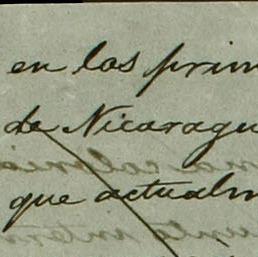 en los prim
de Nicaragu
que actualm